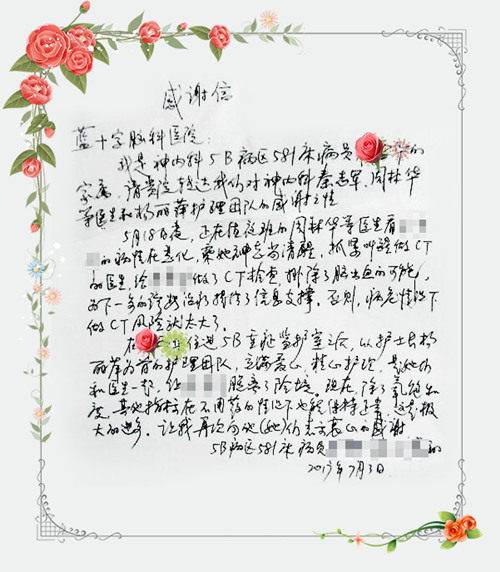 感谢信
蓝十字脑科医院：
我是神内科5B病区581床病员 的
家属，请贵院转达我们对神内科秦志军、周林华
等医生和杨丽萍护理团队的感谢之情
5月18日夜，正在值夜班的周林华等医生看
的病情在恶化，乘她神志尚清醒，抓紧叫醒做CT
的医生，给 做了CT检查，排除了脑出血的可能，
为下一步的诊断治疗提供了信息支撑，否则，病危情况下
做CT风险就太大了。
在 住进5B重症监护室之后，以护士长杨
丽萍为首的护理团队，充满爱心，精心护理，是她们
和医生一起，使 脱离了险境。现在，除了氧饱和
度，其他指标在不用药的情况下也能保持正常，这是极
大的进步。让我再次向他(她)们表示衷心的感谢
5B病区581床病员 的
7月3日